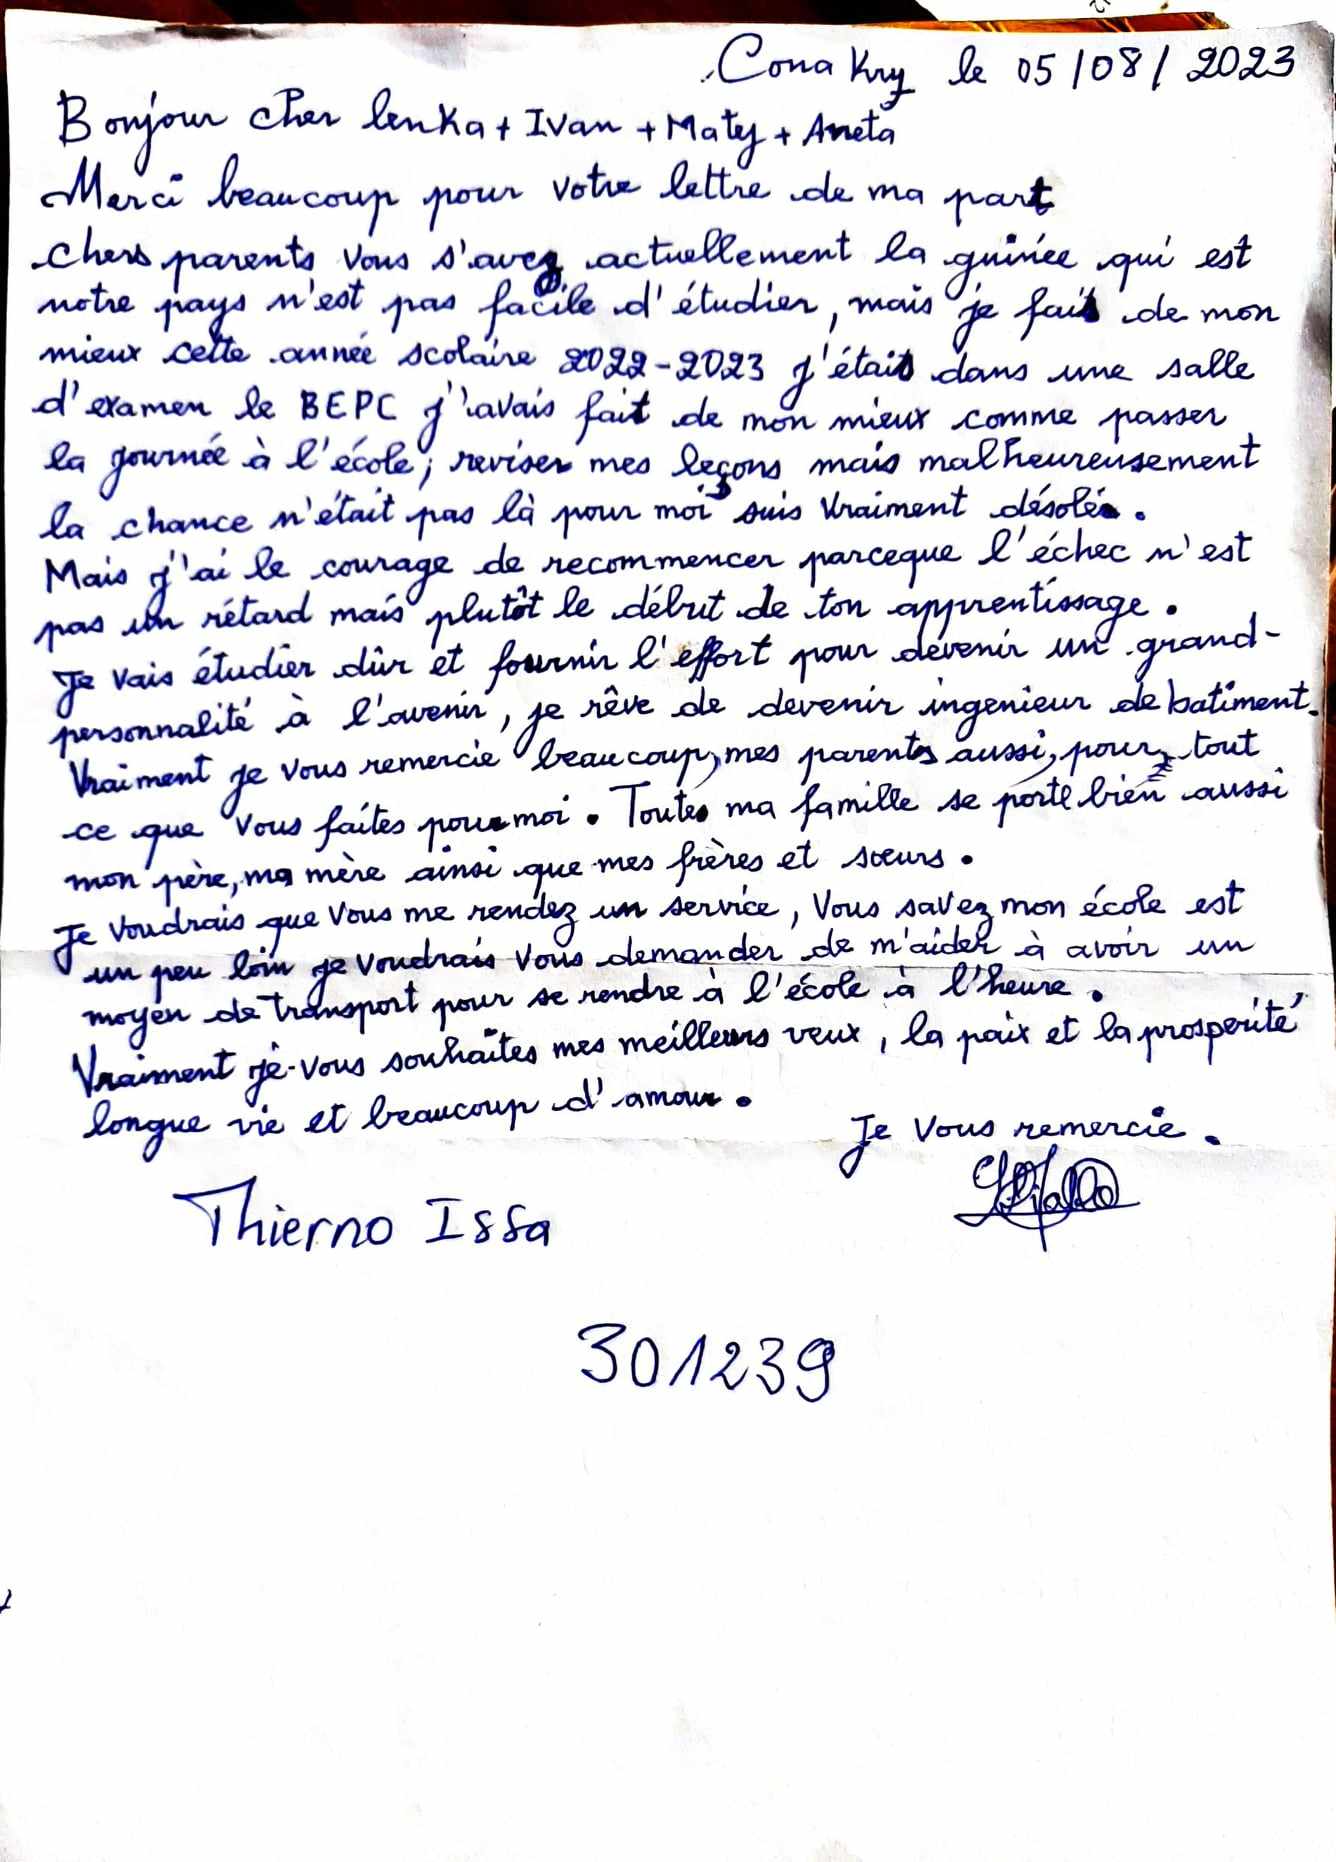 Conakry le 05/08/2023
Bonjour cher lenka + Ivan + Maty + Aneta
Merci beaucoup pour votre lettre de ma part
chers parents vous s'avez actuellement la guinée qui est
notre pays n'est pas facile d'étudier, mais je fais de mon
mieux cette année scolaire 2022-2023 j'étais dans une salle
d'examen le BEPC j'avais fait de mon mieux comme passer
la journée à l'école, reviser mes leçons mais malheureusement
la chance n'était pas là pour moi suis vraiment désolé.
Mais j'ai le courage de recommencer parceque l'échec n'est
pas un rétard mais plutôt le début de ton apprentissage.
Je vais étudier dûr et fournir l'effort pour devenir un grand-
personnalité à l'avenir, je rêve de devenir ingenieur de batiment.
Vraiment je vous remercie beaucoup, mes parents aussi, pour tout
ce que vous faites pour moi. Toutes ma famille se porte bien aussi
mon père, ma mère ainsi que mes frères et sœurs.
Je voudrais que vous me rendez un service, vous savez mon école est
un peu loin je voudrais vous demander de m'aider à avoir un
moyen de transport pour se rendre à l'école à l'heure.
Vraiment je vous souhaites mes meilleurs veux, la paix et la prosperité
longue vie et beaucoup d'amour.
Je vous remercie.
Thierno Issa
301239